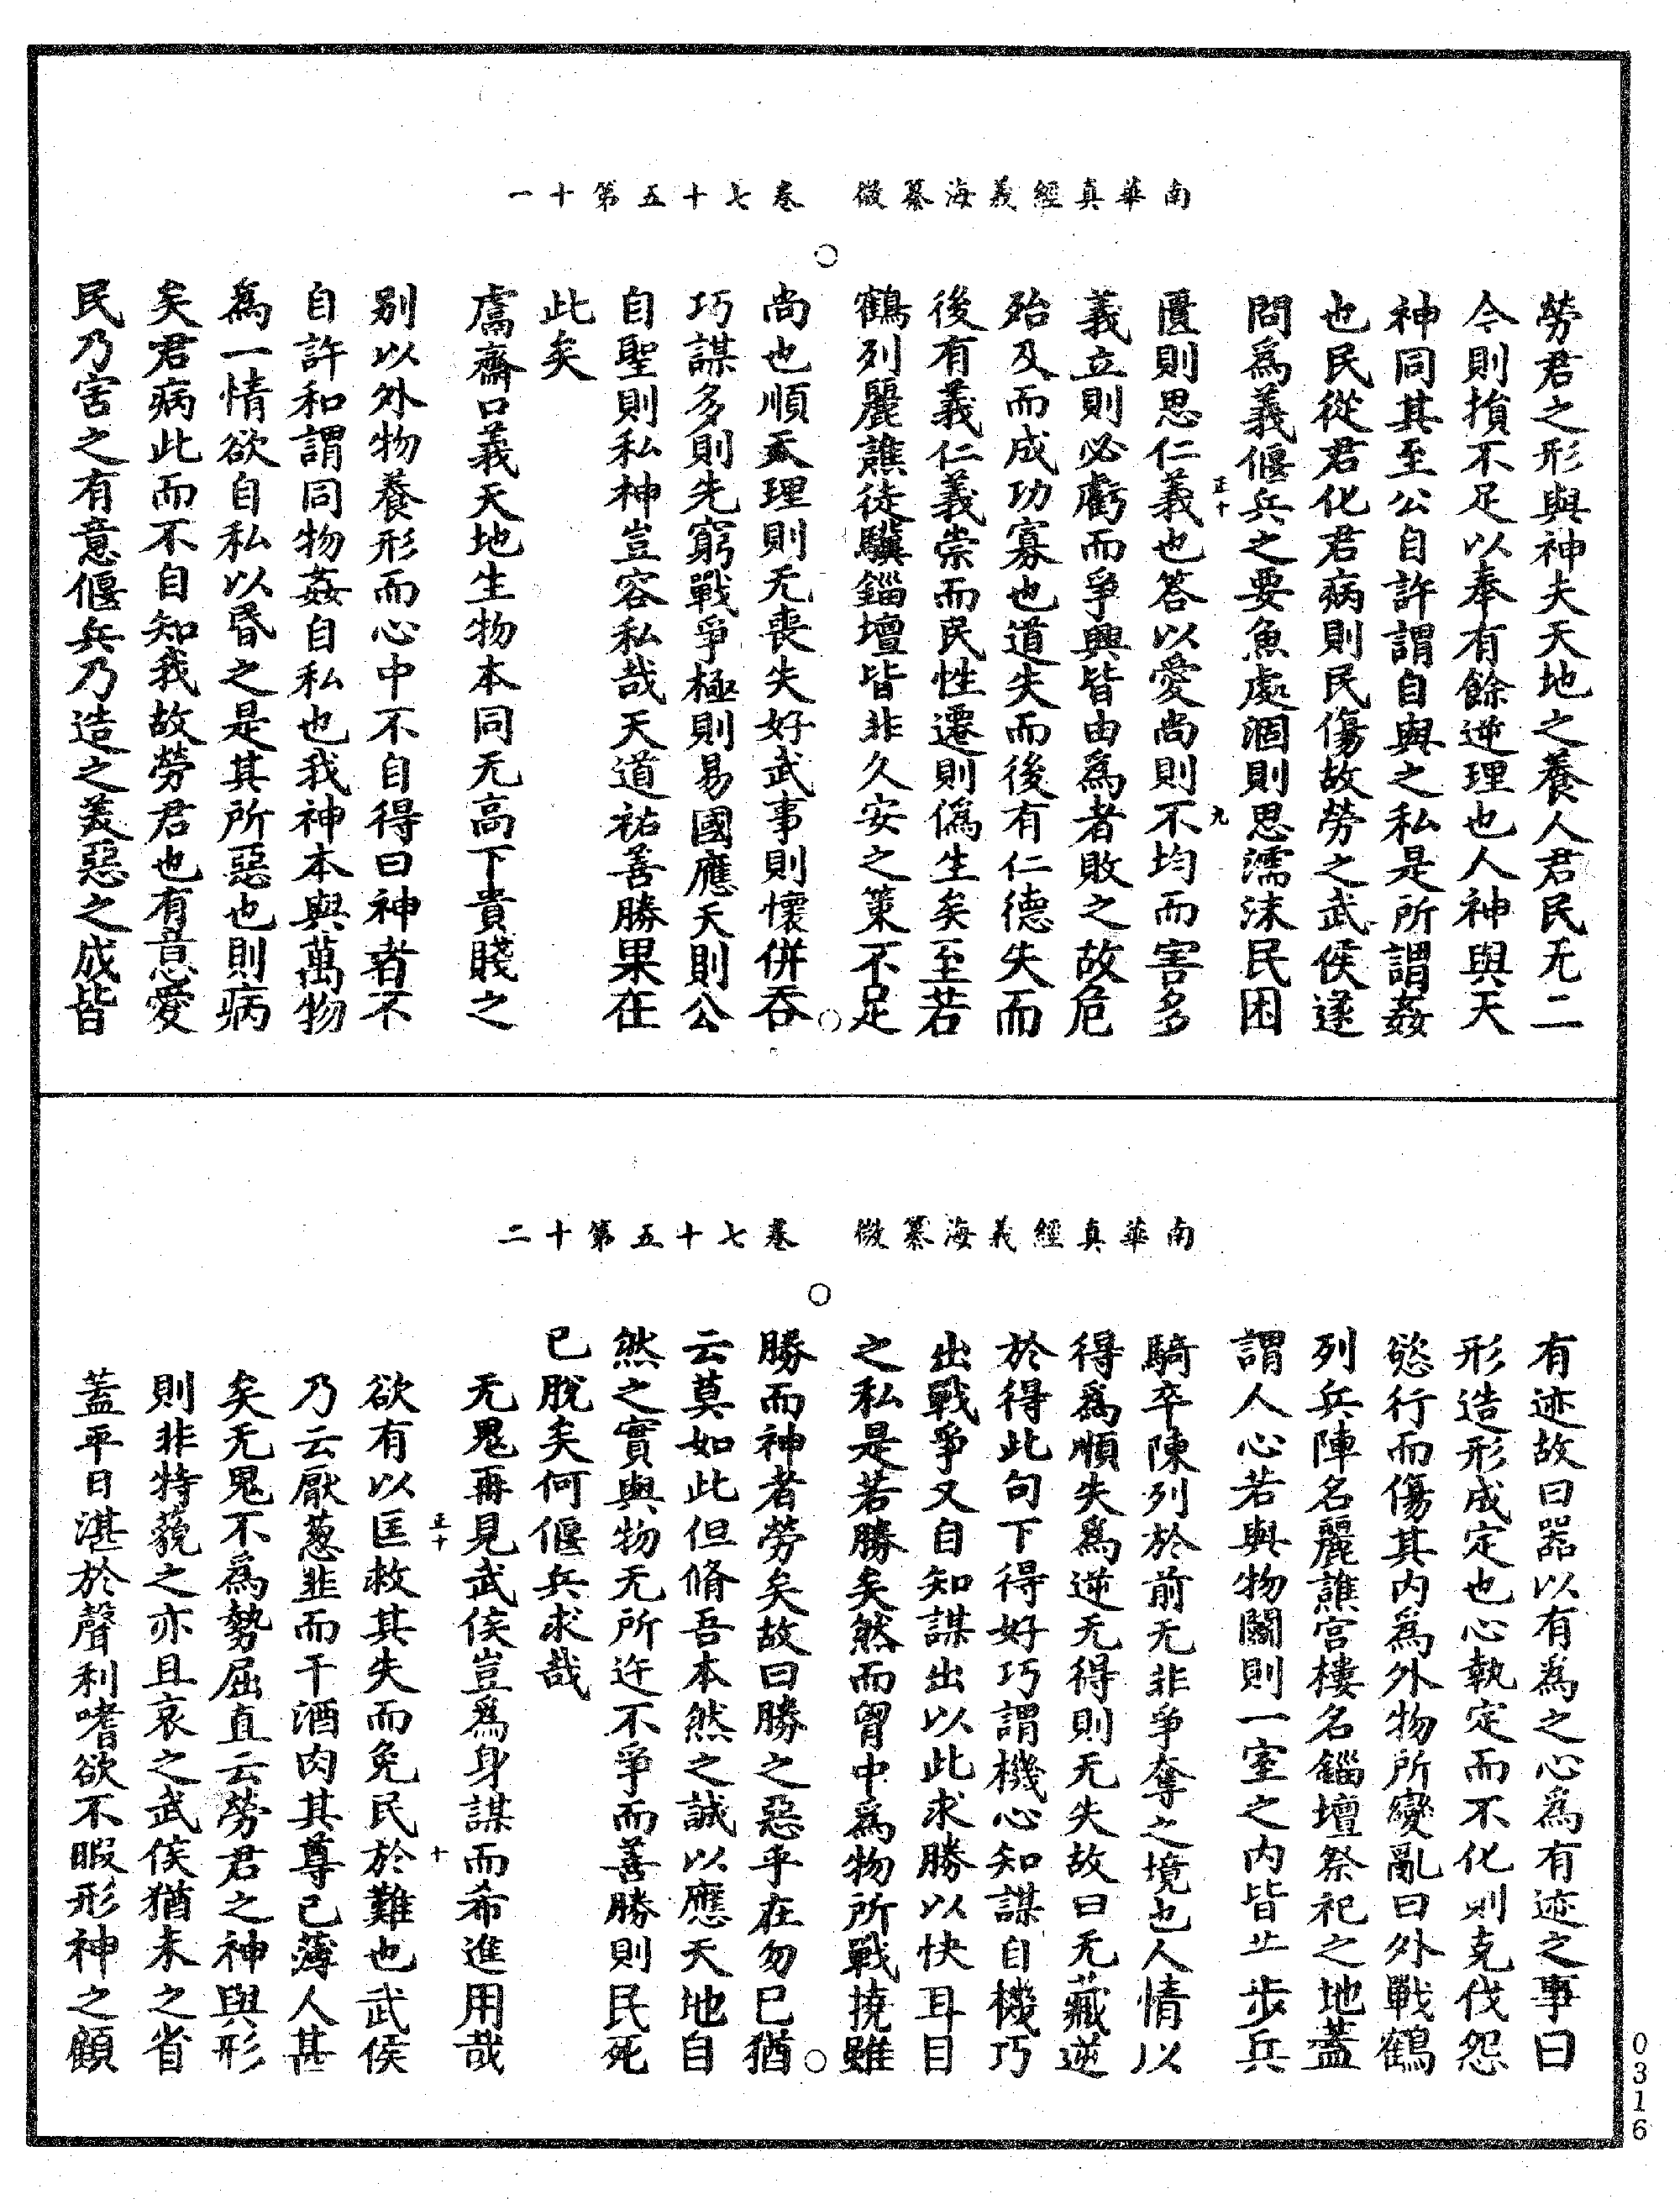 南華真經義海纂微　卷七十五第十一
勞君之形與神夫天地之養人君民无二
今則損不足以奉有餘逆理也人神與天
神同其至公自許謂自與之私是所謂姦
也民從君化君病則民傷故勞之武侯遂
問為義偃兵之要魚處涸則思濡沫民困
匱則思仁義也答以愛尚則不均而害多
正十
九
義立則必虧而爭興皆由為者敗之故危
殆及而成功寡也道失而後有仁德失而
後有義仁義崇而民性遷則偽生矣至若
鶴列麗譙徒驥錙壇皆非久安之策不足
尚也順天理則无喪失好武事則懷併吞
巧謀多則先窮戰爭極則易國應天則公
自聖則私神豈容私哉天道祐善勝果在
此矣
鬳齋口義天地生物本同无高下貴賤之
别以外物養形而心中不自得曰神者不
自許和謂同物姦自私也我神本與萬物
為一情欲自私以昬之是其所惡也則病
矣君病此而不自知我故勞君也有意愛
民乃害之有意偃兵乃造之美惡之成皆
南華真經義海纂微　卷七十五第十二
有迹故曰器以有為之心為有迹之事曰
形造形成定也心執定而不化則克伐怨
慾行而傷其内為外物所變亂曰外戰鶴
列兵陣名麗譙宮樓名錙壇祭祀之地蓋
謂人心若與物鬭則一室之内皆止步兵
騎卒陳列於前无非爭奪之境也人情以
得為順失為逆无得則无失故曰无藏逆
於得此句下得好巧謂機心知謀自機巧
出戰爭又自知謀出以此求勝以快耳目
之私是若勝矣然而胷中為物所戰撓雖
勝而神者勞矣故曰勝之惡乎在勿已猶
云莫如此但脩吾本然之誠以應天地自
然之實與物无所迕不爭而善勝則民死
已脫矣何偃兵求哉
无鬼再見武侯豈為身謀而希進用哉
欲有以匡救其失而免民於難也武侯
正十
十
乃云厭葱韭而干酒肉其尊己薄人甚
矣无鬼不為勢屈直云勞君之神與形
則非特藐之亦且哀之武侯猶未之省
蓋平日湛於聲利嗜欲不暇形神之顧
0316